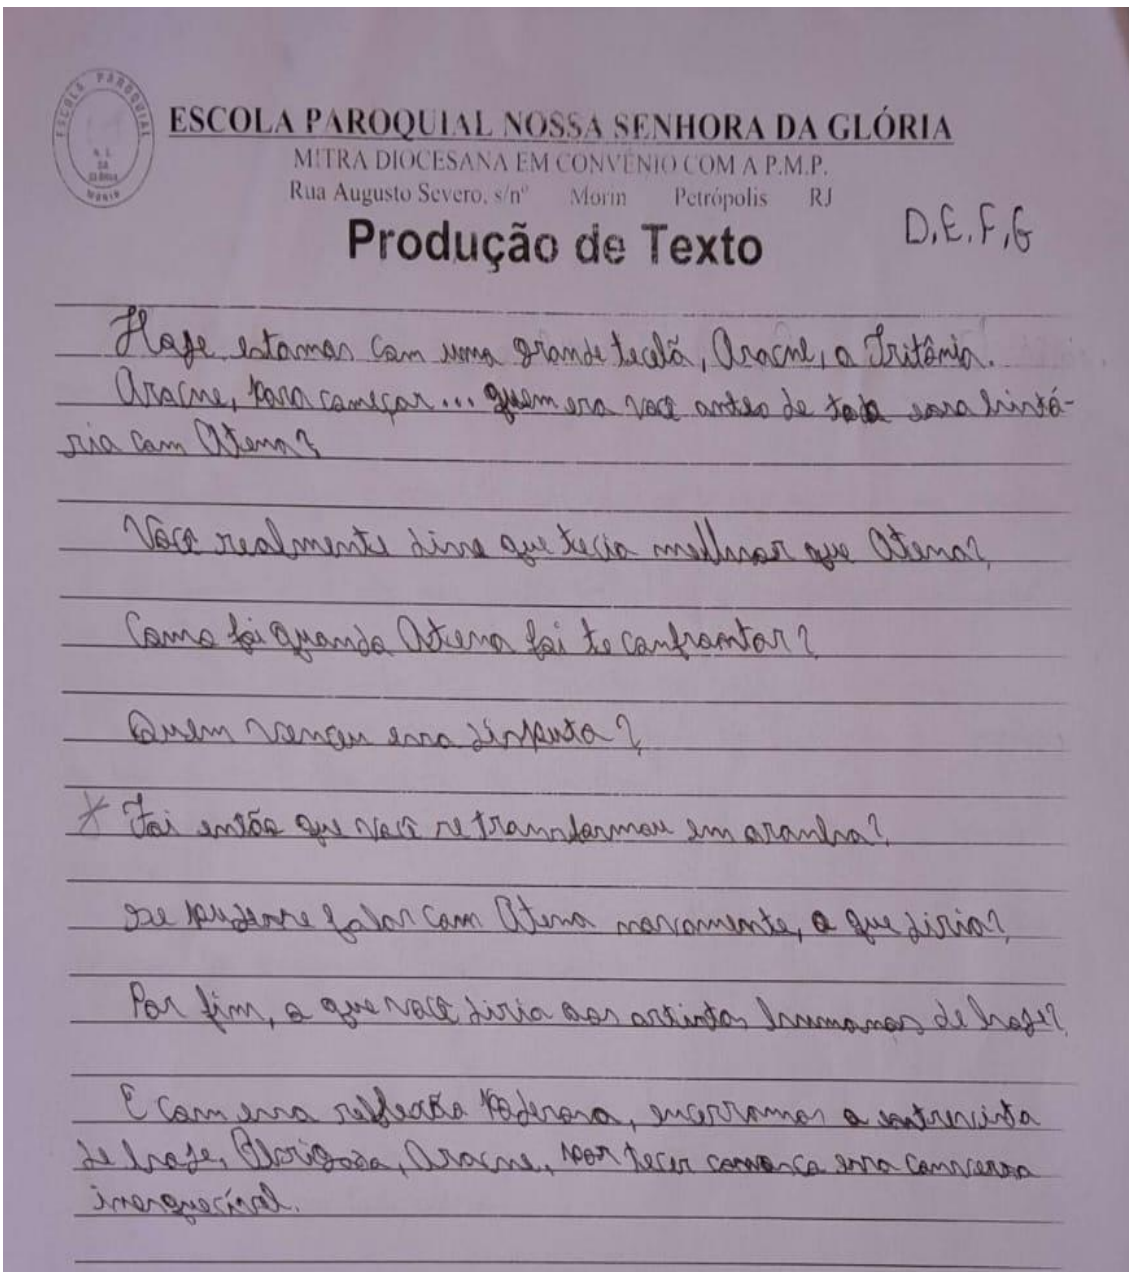 ESCOLA PAROQUIAL
N. S.
DA
GLÓRIA
MORIN
ESCOLA PAROQUIAL NOSSA SENHORA DA GLÓRIA
MITRA DIOCESANA EM CONVÊNIO COM A P.M.P.
Rua Augusto Severo, s/nº Morin Petrópolis RJ
Produção de Texto
D, E, F, G
Hoje estamos com uma grande tecelã, Aracne, a Tritônia.
Aracne, para começar... quem era você antes de toda essa histó-
ria com Atena?
Você realmente disse que tecia melhor que Atena?
Como foi quando Atena foi te confrontar?
Quem venceu essa disputa?
* Foi então que você se transformou em aranha?
Se pudesse falar com Atena novamente, o que diria?
Por fim, o que você diria aos artistas humanos de hoje?
E com essa reflexão poderosa, encerramos a entrevista
de hoje, Obrigada, Aracne, por tecer conosco essa conversa
inesquecível.